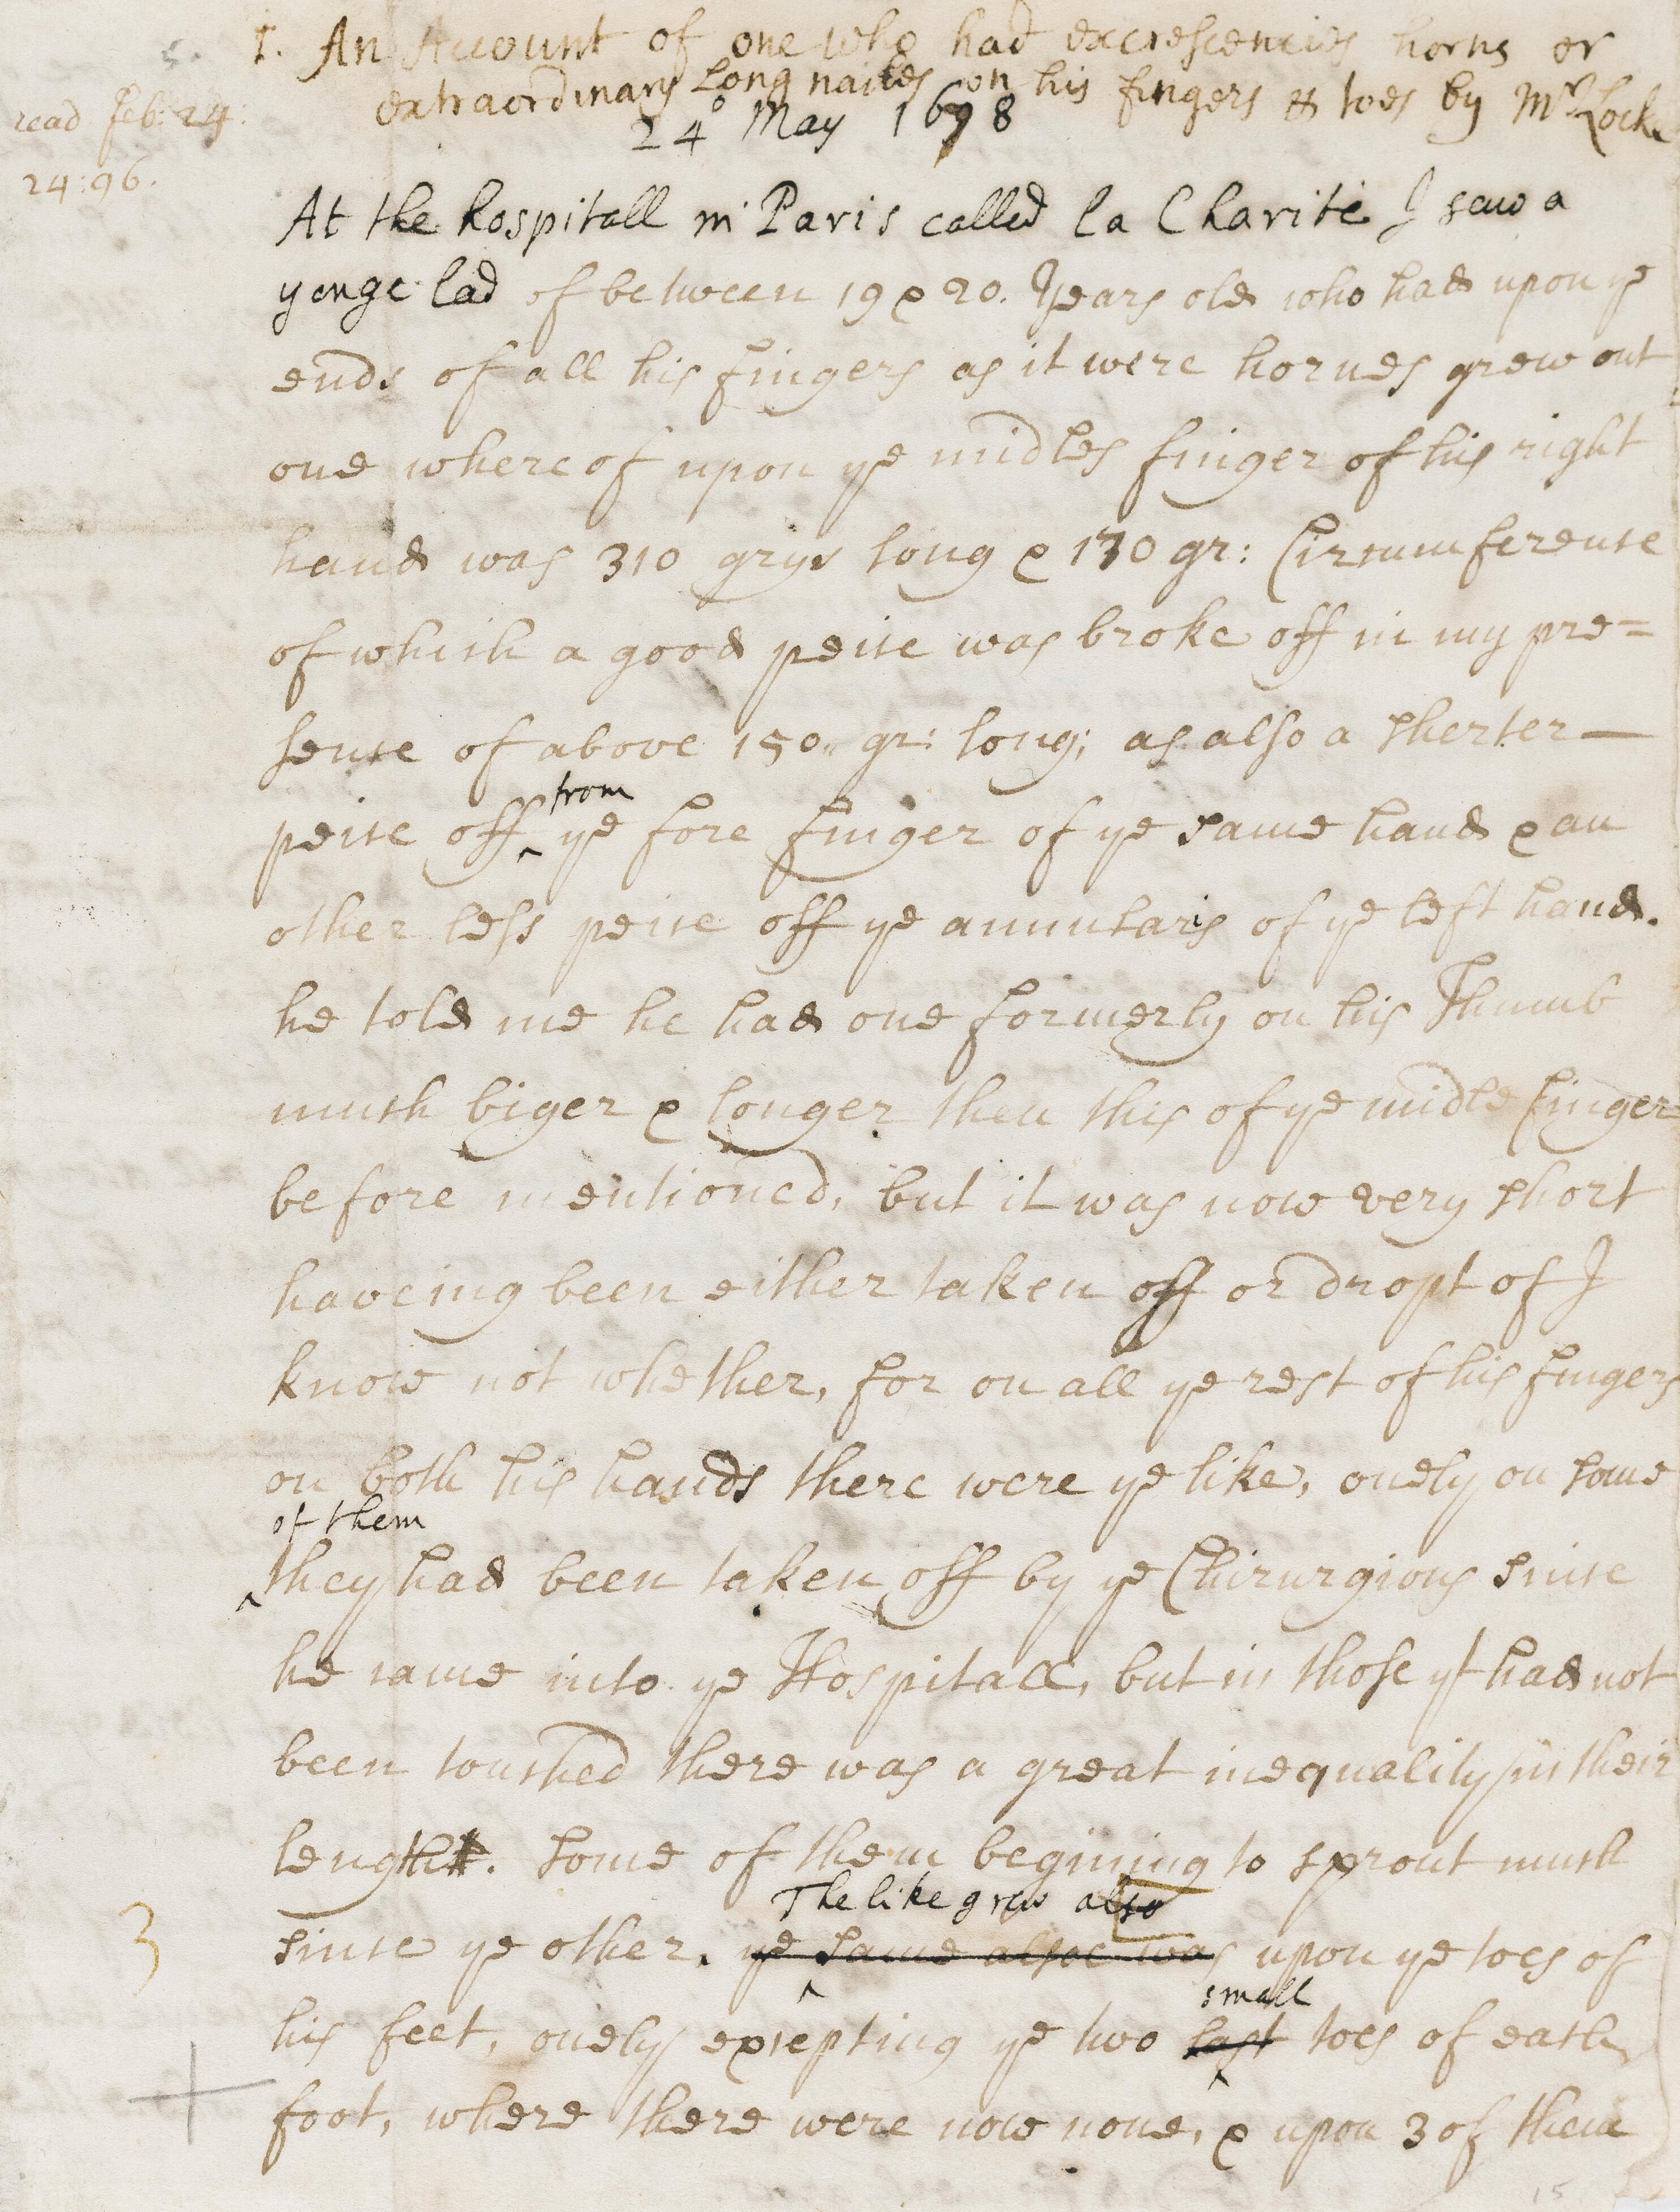 5.
1. An Account of one who had excrescencies horns or
extraordinary Long nailes on his fingers & toes by Mr Locke
read Feb: 24:
24:96.
24° May 1678
At the hospitall in Paris called la Charité I saw a
yonge lad of between 19 & 20. Years old who had upon ye
ends of all his fingers as it were hornes grew out
one whereof upon ye midles finger of his right
hand was 310 grys long & 170 gr: Circumference
of which a good peice was broke off in my pre=
sence of above 150 gr: long; as also a sherter —
peice off from ye fore finger of ye same hand & an
other less peice off ye annularis of ye left hand.
he told me he had one formerly on his Thumb
much biger & longer then this of ye midle finger
before mentioned, but it was now very short
haveing been either taken off or dropt of I
know not whether, for on all ye rest of his fingers
on both his hands there were ye like, onely on some
of them
they had been taken off by ye Chirurgions since
he came into ye Hospitall, but in those yt had not
been touched there was a great inequality in their
length. some of them begining to sprout much
The like grew also
3
since ye other. ye same alsoe was upon ye toes of
small
his feet, onely excepting ye two last toes of each
foot, where there were now none, & upon 3 of them
15